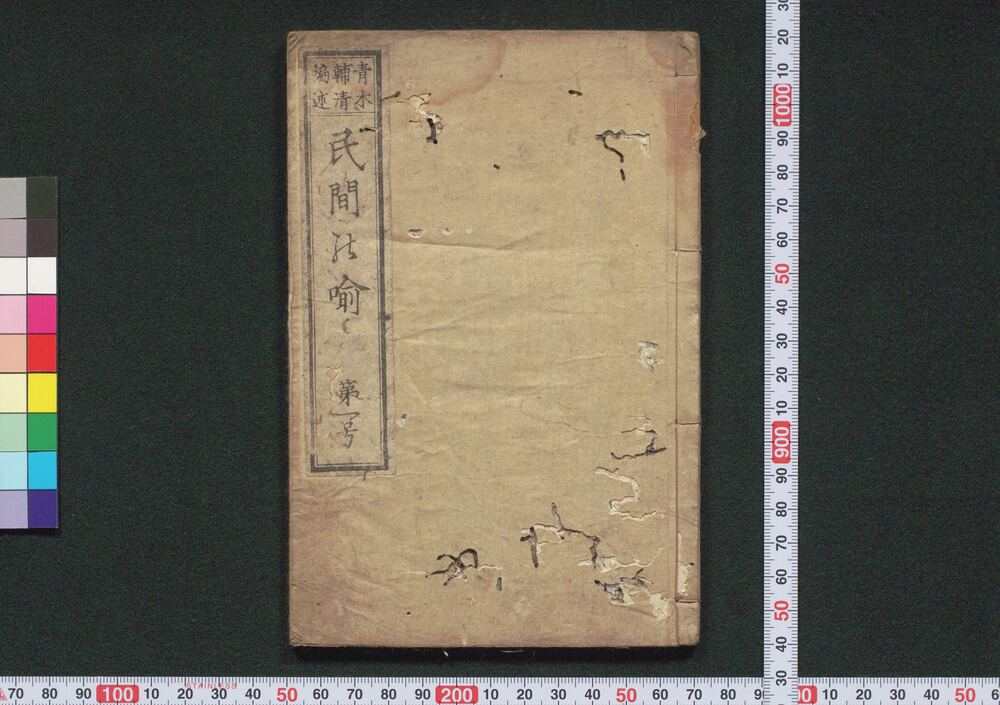 青木
輔清
編述
民間 喩
第一号
50
60
70
80
90
1000
10
20
30
40
50
60
70
80
90
900
10
20
30
70
80
90
100
10
20
30
40
50
60
70
80
90
200
10
20
30
40
50
60
70
80
10
20
30
40
50
STAINLESS